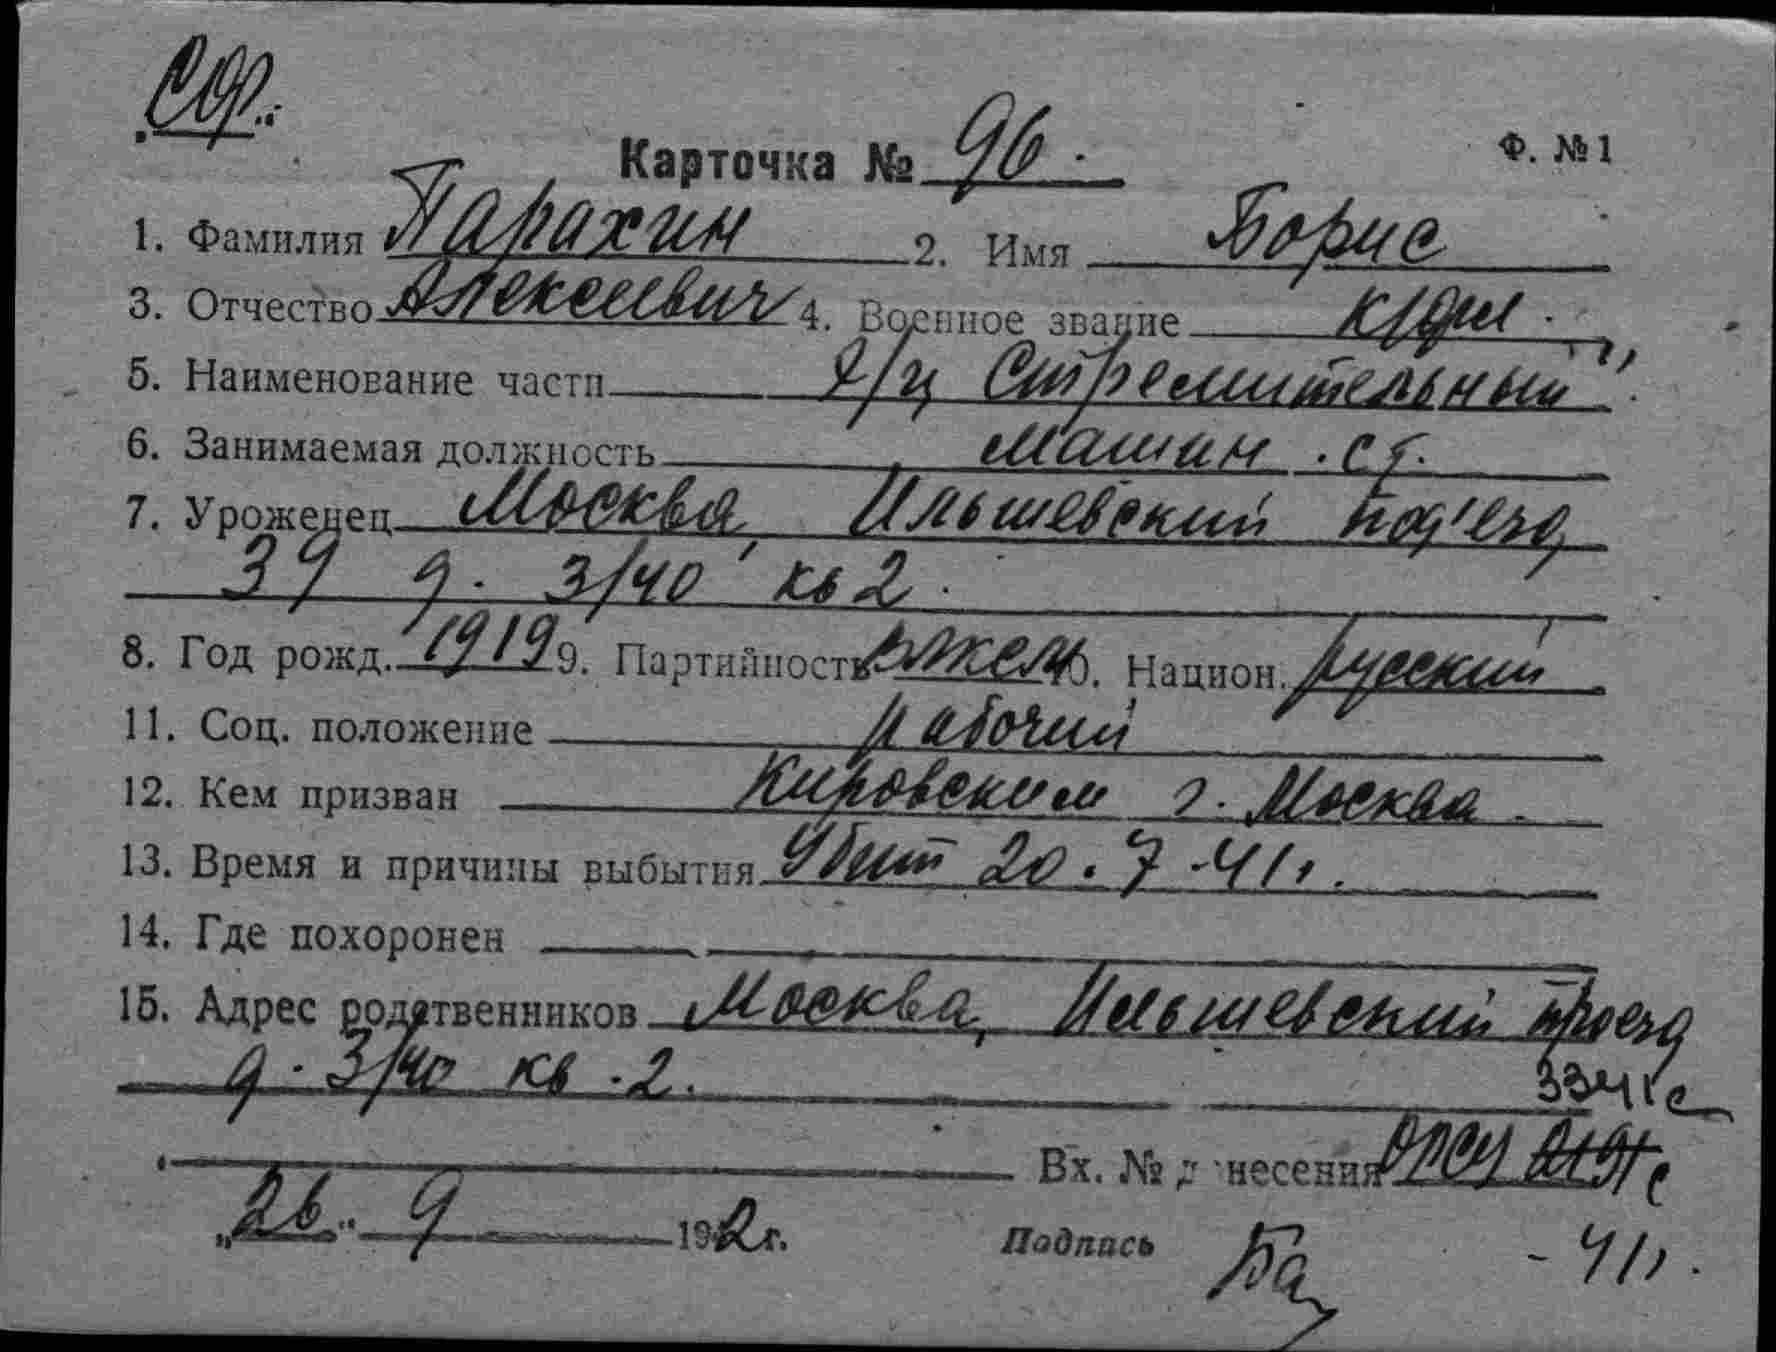 СФ.
Карточка № 96. Ф. №1
1. Фамилия Парахин 2. Имя Борис
3. Отчество Алексеевич 4. Военное звание к/фл.
5. Наименование части Э/ц Стремительный"
6. Занимаемая должность машин. ст.
7. Уроженец Москва, Ильшевский под'езд
39 д. 3/40 кв 2.
8. Год рожд. 1919 9. Партийность влксм 10. Национ. русский
11. Соц. положение рабочий
12. Кем призван Кировским г. Москва.
13. Время и причины выбытия Убит 20.7-41г.
14. Где похоронен
15. Адрес родственников Москва, Ильшевский проезд
д. 3/40 кв. 2.
3341с
Вх. № донесения ОРСУ
„26" 9 1942 г. Подпись Ба -41г.